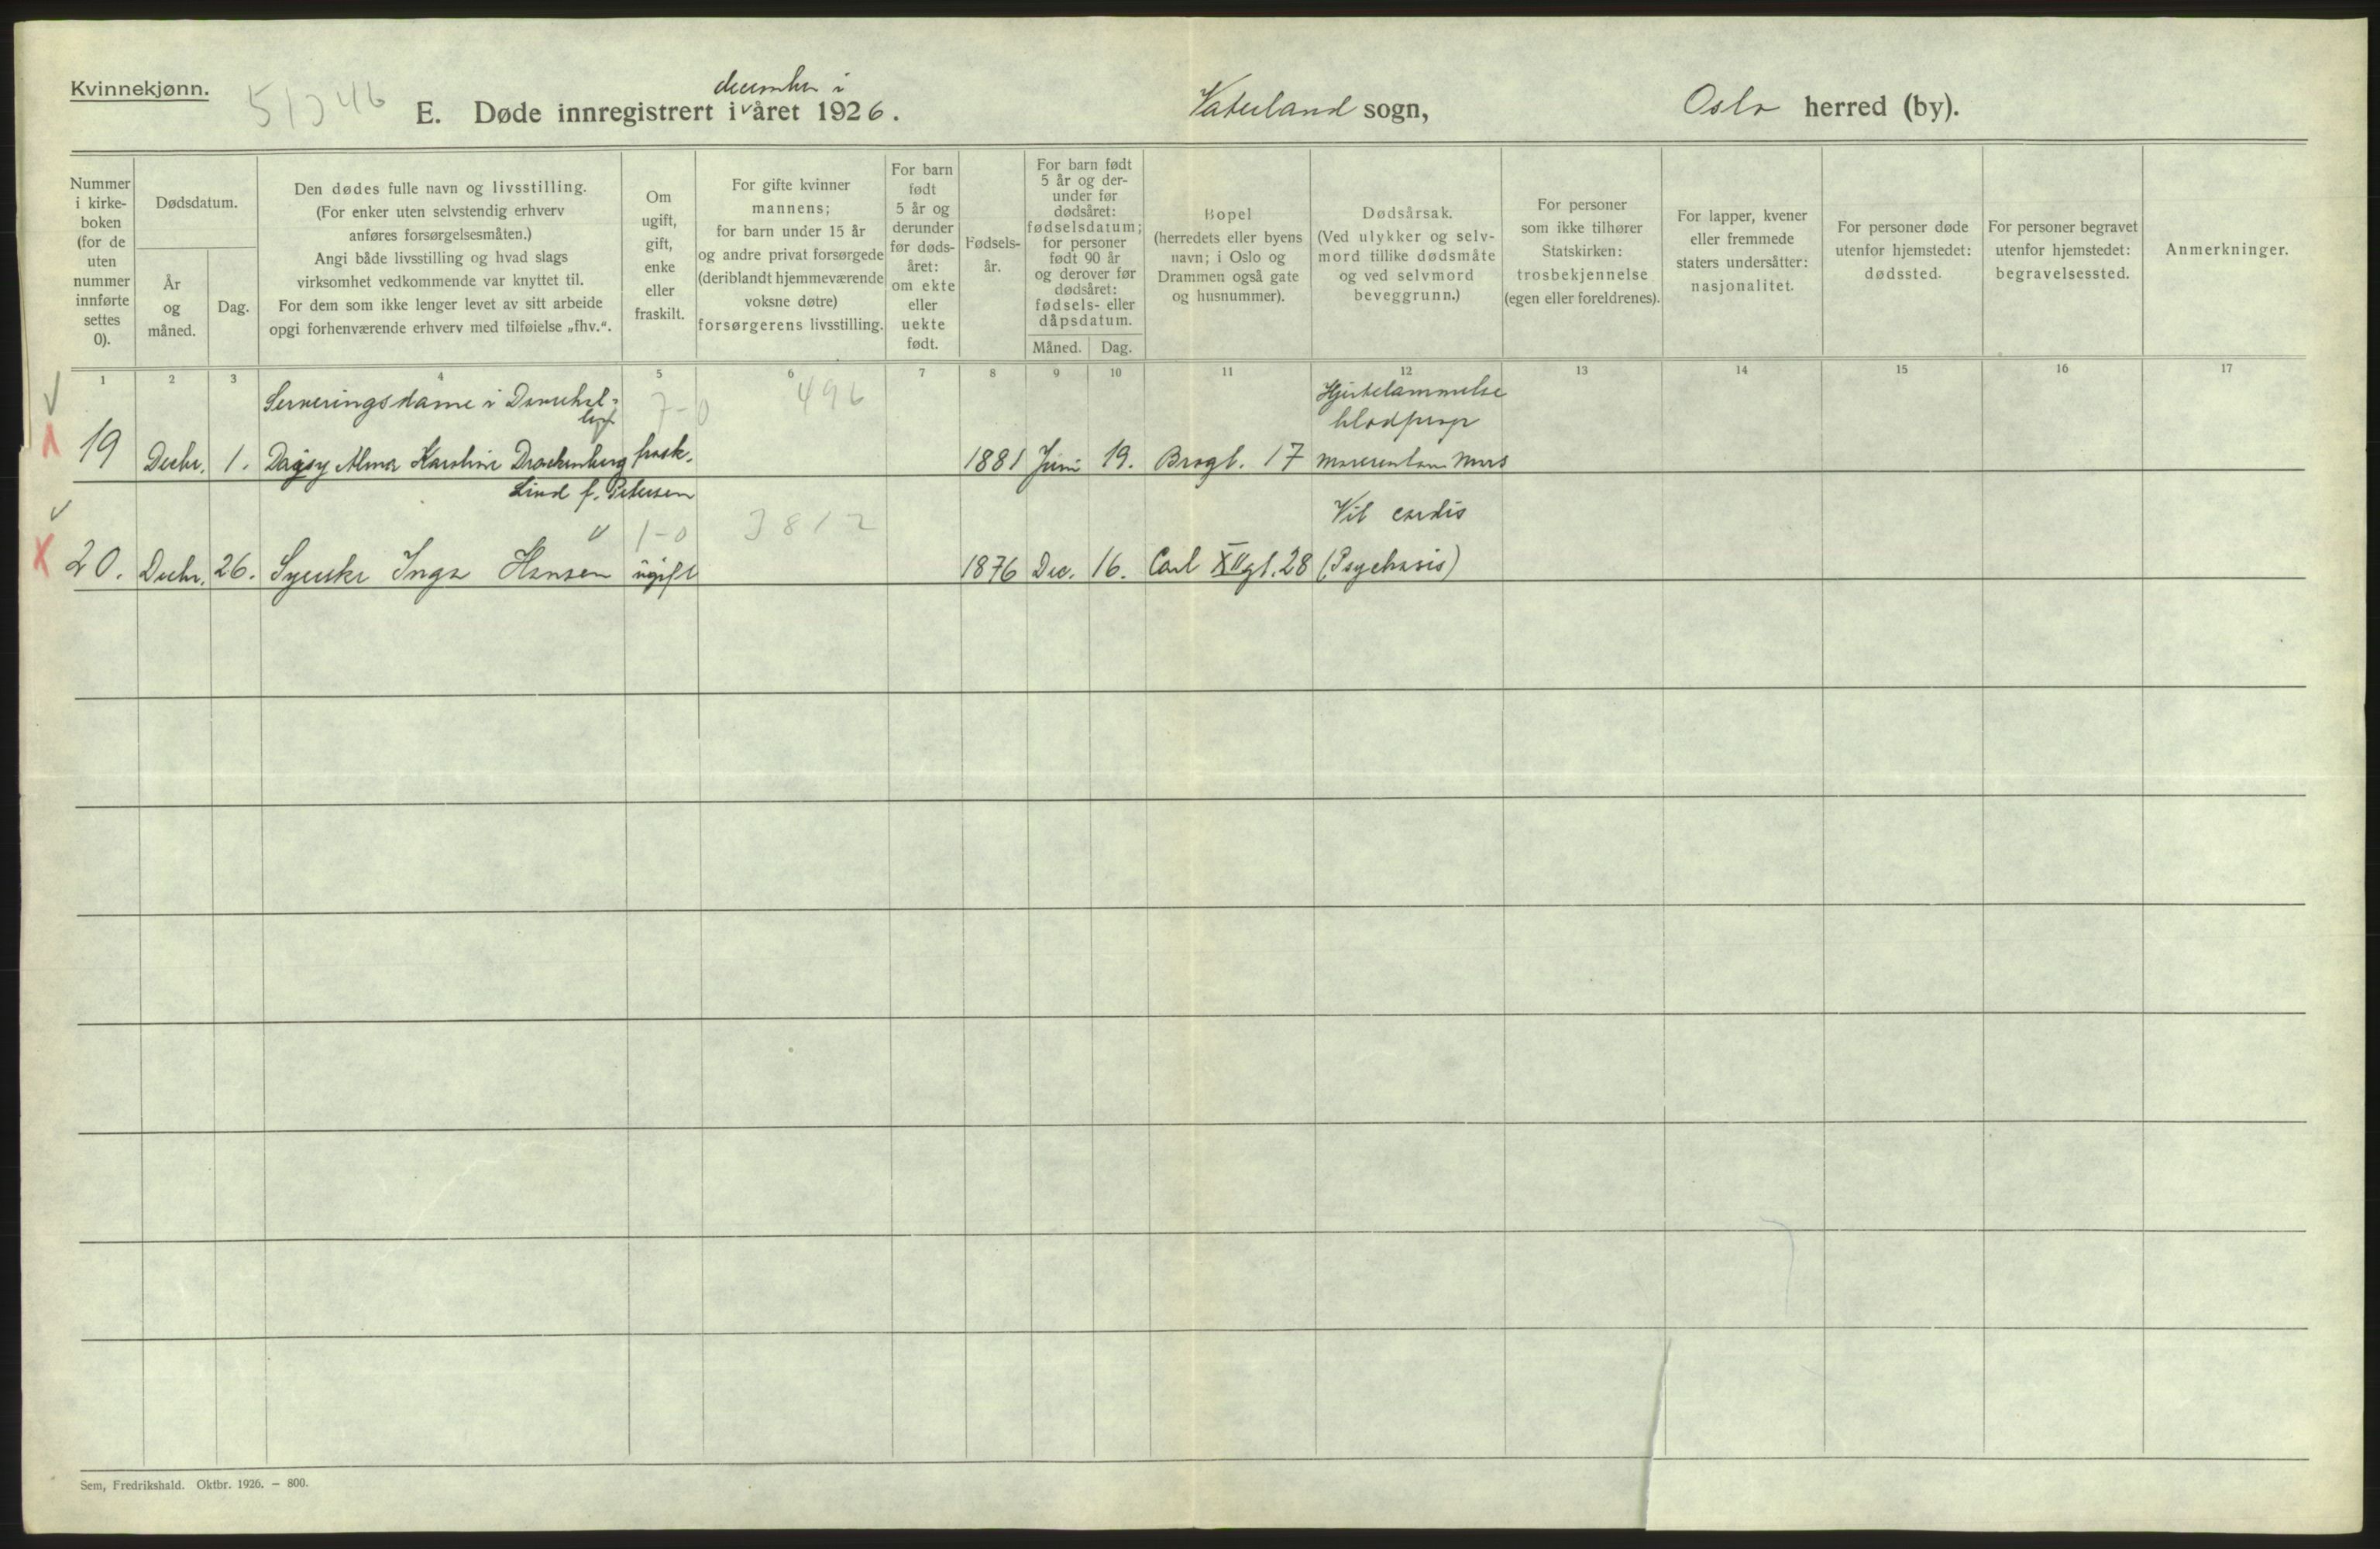 Kvinnekjønn.
51346
december i
E. Døde innregistrert i året 1926.
Vaterland sogn,
Oslo herred (by).
Nummer
i kirke-
boken
(for de
uten
nummer
innførte
settes
0).
Dødsdatum.
År
og
måned.
Dag.
Den dødes fulle navn og livsstilling.
(For enker uten selvstendig erhverv
anføres forsørgelsesmåten.)
Angi både livsstilling og hvad slags
virksomhet vedkommende var knyttet til.
For dem som ikke lenger levet av sitt arbeide
opgi forhenværende erhverv med tilføielse „fhv.“.
Om
ugift,
gift,
enke
eller
fraskilt.
For gifte kvinner
mannens;
for barn under 15 år
og andre privat forsørgede
(deriblandt hjemmeværende
voksne døtre)
forsørgerens livsstilling.
For barn
født
5 år og
derunder
før døds-
året:
om ekte
eller
uekte
født.
Fødsels-
år.
For barn født
5 år og der-
under før
dødsåret:
fødselsdatum;
for personer
født 90 år
og derover før
dødsåret:
fødsels- eller
dåpsdatum.
Måned. Dag.
Bopel
(herredets eller byens
navn; i Oslo og
Drammen også gate
og husnummer).
Dødsårsak.
(Ved ulykker og selv-
mord tillike dødsmåte
og ved selvmord
beveggrunn.)
For personer
som ikke tilhører
Statskirken:
trosbekjennelse
(egen eller foreldrenes).
For lapper, kvener
eller fremmede
staters undersåtter:
nasjonalitet.
For personer døde
utenfor hjemstedet:
dødssted.
For personer begravet
utenfor hjemstedet:
begravelsessted.
Anmerkninger.
1 2 3 4 5 6 7 8 9 10 11 12 13 14 15 16 17
Serveringsdame i
7-0
496
Hjertelammelse
blodprop
19 Decbr. 1. Dagny Alma Karoline Drachenberg frask. 1881 Juni 19. Brogt. 17
Lind f. Petersen
1-0
3812
Vit cordis
20. Decbr. 26. Syerske Inga Hansen ugift 1876 Dec. 16. Carl XII gt. 28 (Psychosis)
Sem, Fredrikshald. Oktbr. 1926. — 800.